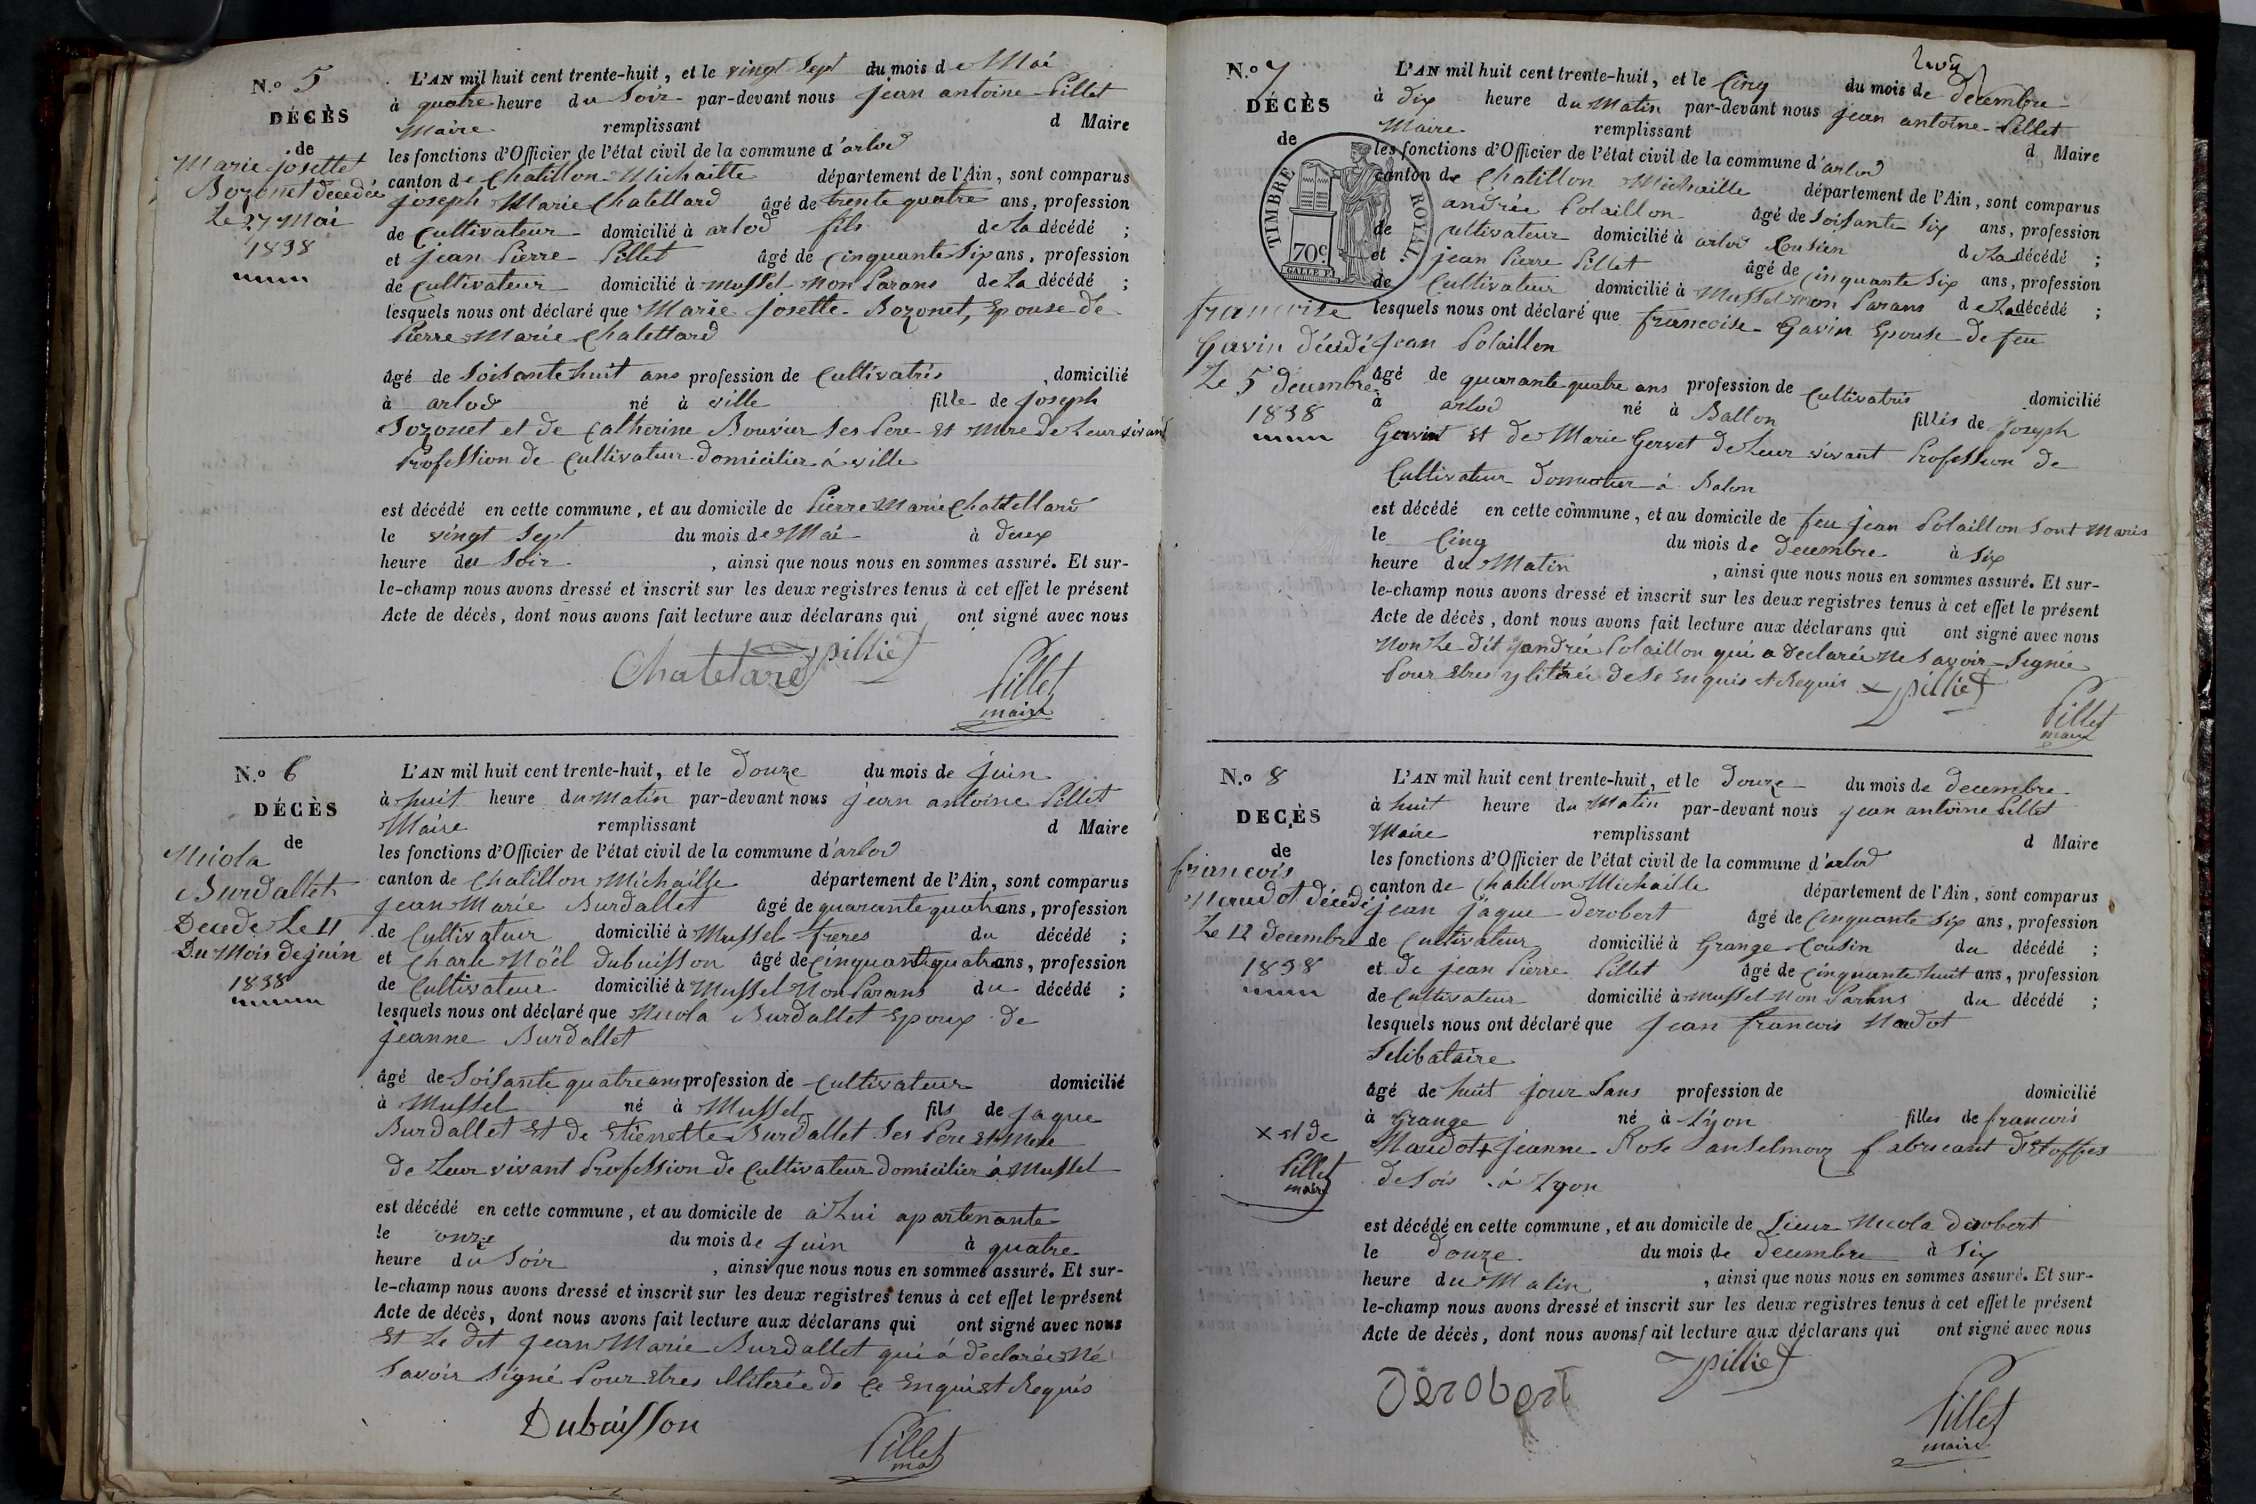 N.º 5
DÉCÈS
de
Marie josette
Bozonet décédée
Le 27 Mai
1838
L'AN mil huit cent trente-huit, et le vingt Sept du mois de Mai
à quatre heure du Soir par-devant nous jean antoine Pillet
Maire remplissant d Maire
les fonctions d'Officier de l'état civil de la commune d'arlod
canton de Chatillon Michaille département de l'Ain, sont comparus
joseph Marie Chatellard âgé de trente quatre ans, profession
de Cultivateur domicilié à arlod fils de La décédé ;
et jean Pierre Pillet âgé de cinquante Six ans, profession
de Cultivateur domicilié à Mussel non Parans de La décédé ;
lesquels nous ont déclaré que Marie josette Bozonet, Epouse de
Pierre Marie Chatellard
âgé de Soisante huit ans profession de Cultivatris , domicilié
à arlod né à ville fille de joseph
Bozonet et de Catherine Bouvier Ses Pere et Mere de Leur vivant
Profession de Cultivateur domicilier à ville
est décédé en cette commune, et au domicile de Pierre Marie Chattellard
le vingt Sept du mois de Mai à deux
heure du Soir , ainsi que nous nous en sommes assuré. Et sur-
le-champ nous avons dressé et inscrit sur les deux registres tenus à cet effet le présent
Acte de décès, dont nous avons fait lecture aux déclarans qui ont signé avec nous
Chatelard pilliet
Pillet
maire
N.º 6
DÉCÈS
de
Nicola
Burdallet
Decede Le 11
Du Mois de juin
1838
L'AN mil huit cent trente-huit, et le douze du mois de juin
à huit heure du Matin par-devant nous jean antoine Pillet
Maire remplissant d Maire
les fonctions d'Officier de l'état civil de la commune d'arlod
canton de Chatillon Michaille département de l'Ain, sont comparus
jean Marie Burdallet âgé de quarante quatre ans, profession
de Cultivateur domicilié à Mussel freres du décédé ;
et Charle Noël dubuisson âgé de cinquante quatre ans, profession
de Cultivateur domicilié à Mussel Non Parans du décédé ;
lesquels nous ont déclaré que Nicola Burdallet Epoux de
jeanne Burdallet
âgé de Soisante quatre ans profession de Cultivateur domicilié
à Mussel né à Mussel fils de jaque
Burdallet Et de Etienette Burdallet Ses Pere et Mere
de Leur vivant Profession de Cultivateur domicilier à Mussel
est décédé en cette commune, et au domicile de à Lui apartenante
le onze du mois de juin à quatre
heure du Soir , ainsi que nous nous en sommes assuré. Et sur-
le-champ nous avons dressé et inscrit sur les deux registres tenus à cet effet le présent
Acte de décès, dont nous avons fait lecture aux déclarans qui ont signé avec nous
Et Le dit jean Marie Burdallet qui à declarée Né
Savoir Signé Pour Etres illiterée de Ce Enquis et Requis
Dubuisson
Pillet
N.º 7
DÉCÈS
de
TIMBRE ROYAL
70c
francoise
Gavin décédé
Le 5 decembre
1838
L'AN mil huit cent trente-huit, et le Cinq du mois de decembre
à dix heure du Matin par-devant nous jean antoine Pillet
Maire remplissant d Maire
les fonctions d'Officier de l'état civil de la commune d'arlod
canton de Chatillon Michaille département de l'Ain, sont comparus
andrée Polaillon âgé de Soisante Six ans, profession
de cultivateur domicilié à arlod Cousin de La décédé ;
et jean Pierre Pillet âgé de cinquante Six ans, profession
de Cultivateur domicilié à Mussel non Parans de La décédé ;
lesquels nous ont déclaré que francoise Gavin Epouse de feu
jean Polaillon
âgé de quarante quatre ans profession de Cultivatris domicilié
à arlod né à Ballon filles de joseph
Et de Marie Gervet de Leur vivant Profession de
Cultivateur à Balon
est décédé en cette commune, et au domicile de feu jean Polaillon Sont Maris
le Cinq du mois de decembre à Six
heure du Matin , ainsi que nous nous en sommes assuré. Et sur-
le-champ nous avons dressé et inscrit sur les deux registres tenus à cet effet le présent
Acte de décès, dont nous avons fait lecture aux déclarans qui ont signé avec nous
Non Le dit andrée Polaillon qui a declarée Ne Savoir Signée
Pour Etres de Se Enquis et Requis pilliet
Pillet
maire
N.º 8
DÉCÈS
de
francois
Naudot décédé
Le 12 decembre
1838
L'AN mil huit cent trente-huit, et le douze du mois de decembre
à huit heure du Matin par-devant nous jean antoine Pillet
Maire remplissant d Maire
les fonctions d'Officier de l'état civil de la commune d'arlod
canton de Chatillon Michaille département de l'Ain, sont comparus
jean jaque derobert âgé de cinquante Six ans, profession
de Cultivateur domicilié à Grange Cousin du décédé ;
et de jean Pierre Pillet âgé de cinquante huit ans, profession
de Cultivateur domicilié à Mussel Non Parans du décédé ;
lesquels nous ont déclaré que jean francois Naudot
Selibataire
âgé de huit jour Sans profession de domicilié
à Grange né à Lyon filles de francois
Naudot x jeanne Rose anselmoz fabricant d'Etoffes
x et de
Pillet
maire
de Sois à Lyon
est décédé en cette commune, et au domicile de Sieur Nicola derobert
le douze du mois de decembre à Six
heure du Matin , ainsi que nous nous en sommes assuré. Et sur-
le-champ nous avons dressé et inscrit sur les deux registres tenus à cet effet le présent
Acte de décès, dont nous avons fait lecture aux déclarans qui ont signé avec nous
Dérobert pilliet
Pillet
maire